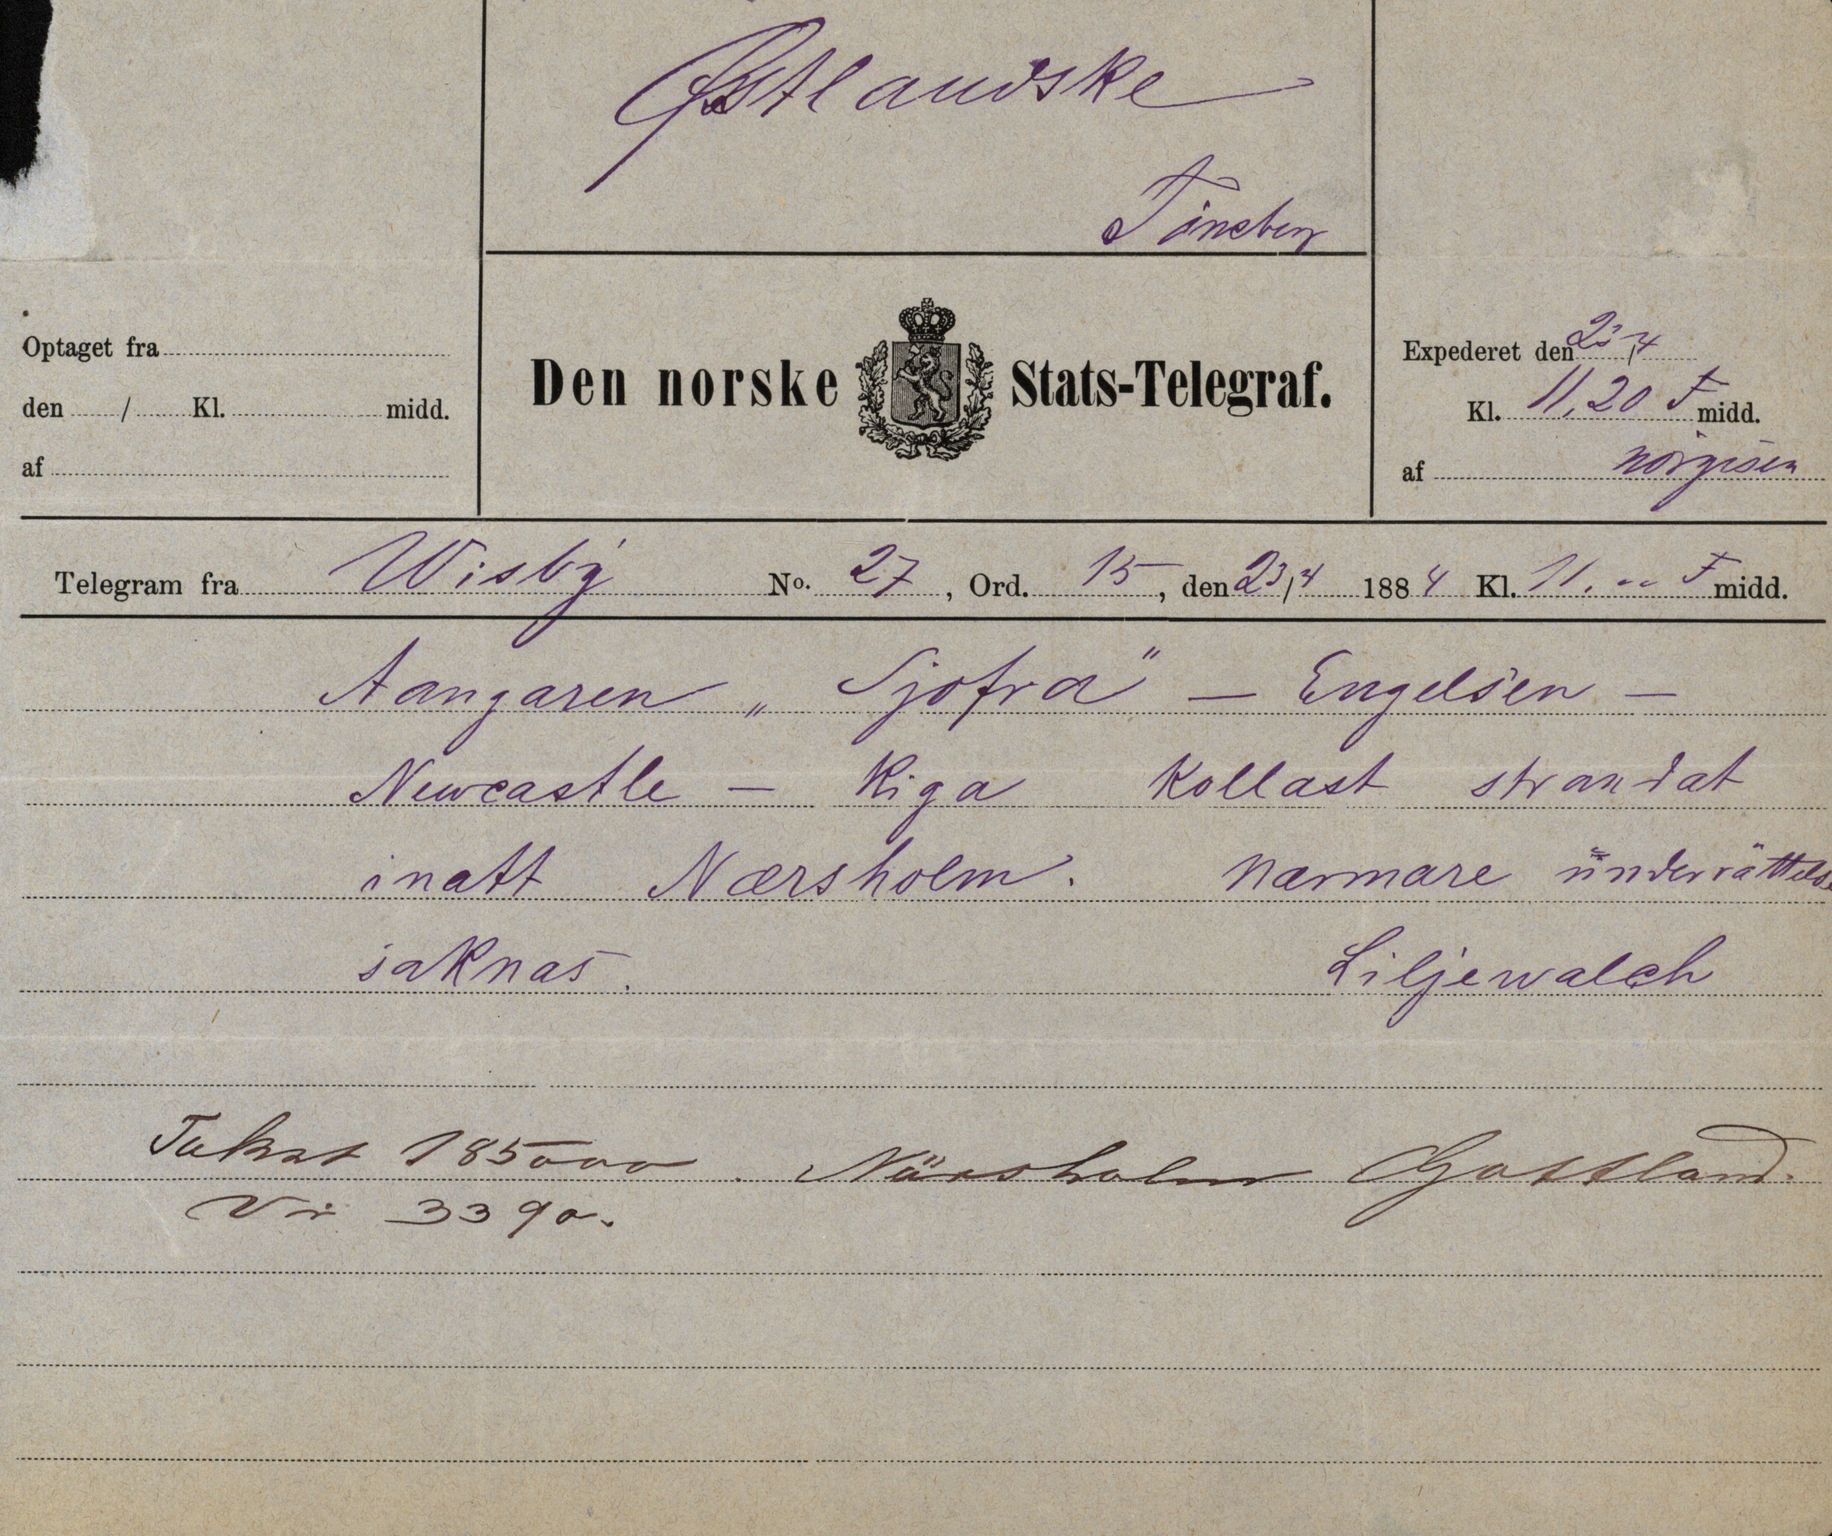 Østlandske
Tönsberg
Optaget fra
den / Kl. midd.
af
Den norske Stats-Telegraf.
Expederet den 23/4
Kl. 11,20 F midd.
af
Telegram fra Wisby No. 27, Ord. 15, den 23/4 1884 Kl. 11. -- F midd.
Aangaren „Sjofra" — Engelsen —
Newcastle — Riga Kollast strandat
inatt Nærsholm. Nærmare underrättelse
saknas. Liljewalch
Takst 185000. Närsholm Gottland.
Vi 3390.